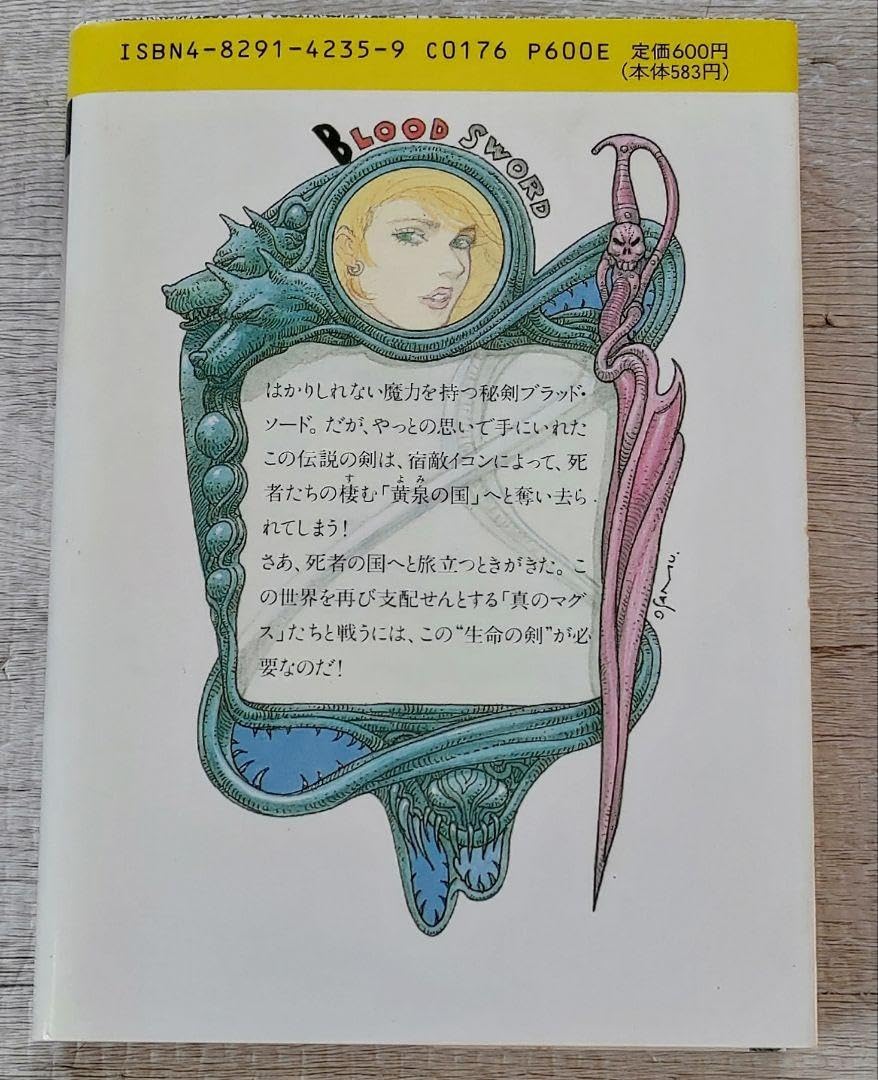 ISBN4-8291-4235-9 C0176 P600E 定価600円
(本体583円)
BLOOD SWORD
はかりしれない魔力を持つ秘剣ブラッド・
ソード。だが、やっとの思いで手にいれた
この伝説の剣は、宿敵イコンによって、死
者たちの棲む「黄泉の国」へと奪い去ら
れてしまう!
さあ、死者の国へと旅立つときがきた。こ
の世界を再び支配せんとする「真のマグ
ス」たちと戦うには、この“生命の剣”が必
要なのだ!